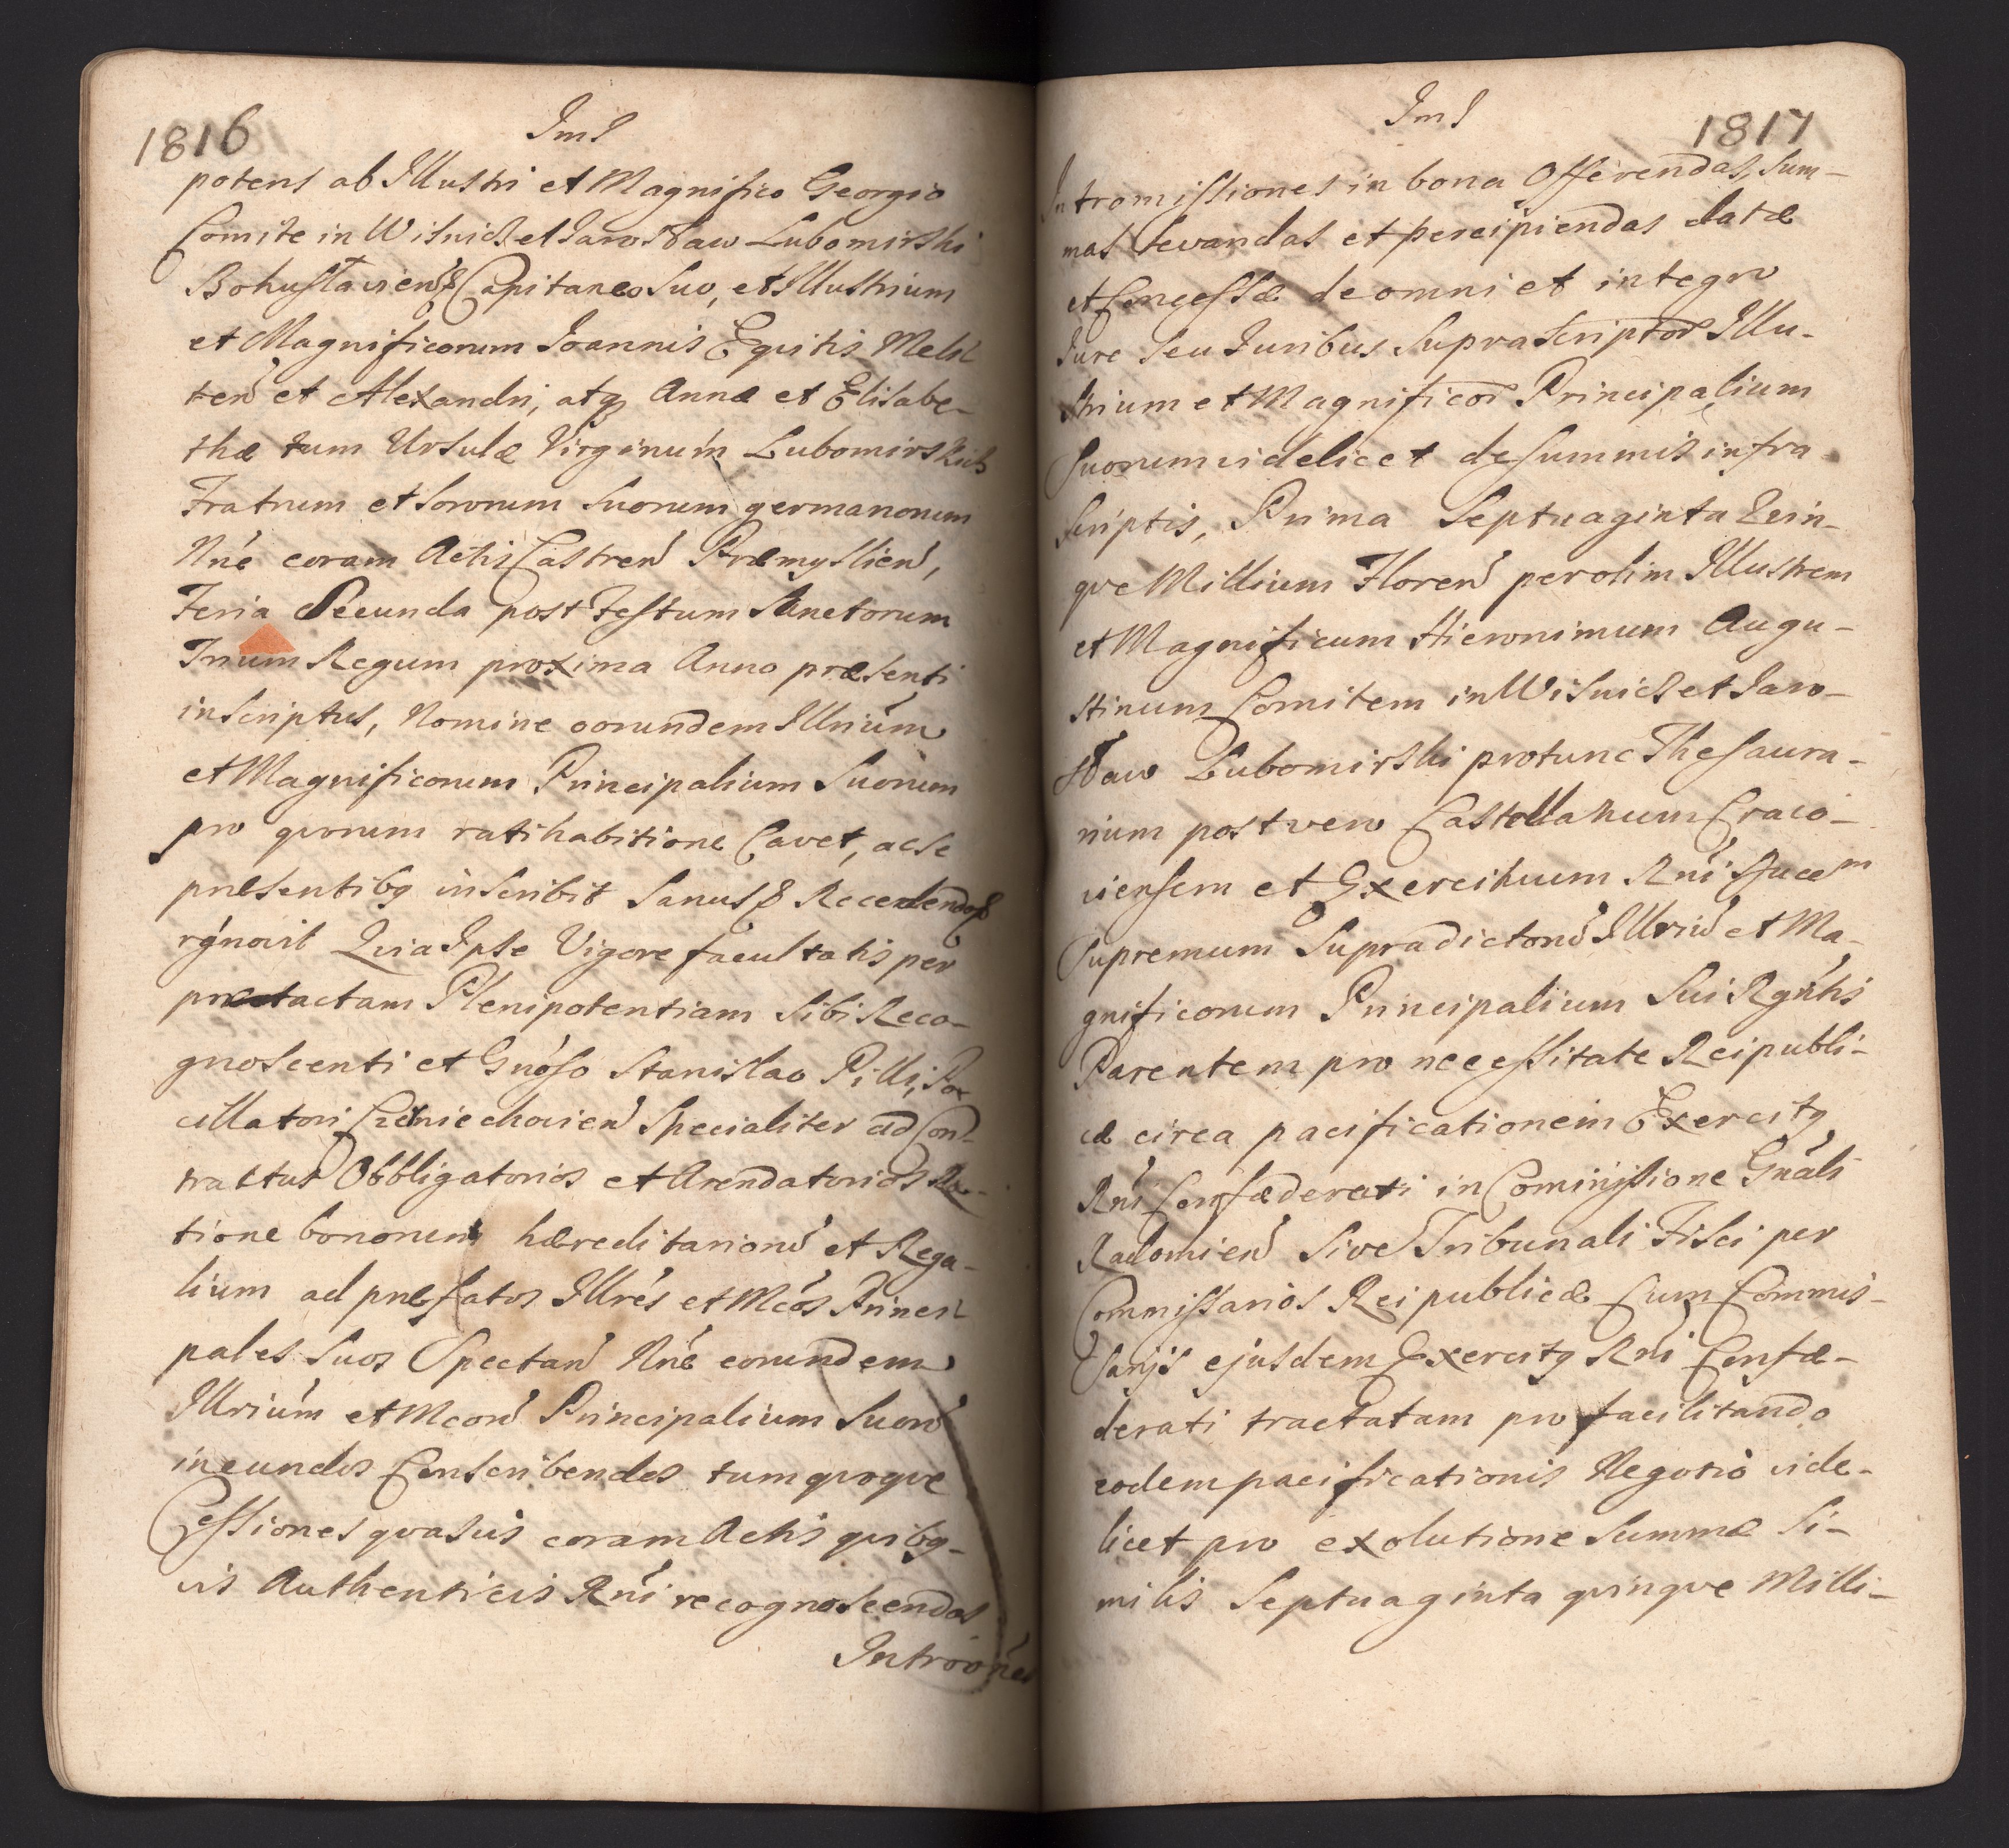 1816
JmJ
potens ab Illustri et Magnifico Georgio
Comite in Wisnicz et Jarosław Lubomirski
Bohuslavien̄ Capitaneo Suo, et Illustrium
et Magnificorum Joannis Equitis Meli-
ten̄ et Alexandri, atq̢ Annæ et Elisabe-
thæ tum Ursulæ Virginum Lubomirskich
Fratrum et Sororum Suorum germanorum
Nn̄e coram Actis Castren̄ Præmyslien̄,
Feria Secunda post Festum Sanctorum
Trium Regum proxima Anno præsenti
inscriptus, Nomine eorundem Illrium
et Magnificorum Principalium Suorum
pro quorum ratihabitione Cavet, ac se
præsentibq̢ inscribit Sanus &c Recedendo &c
rg̃novit Quia Ipse Vigore facultatis per
prætactam Plenipotentiam Sibi Reco-
gnoscenti et Gnõso Stanislao Pilli, Po-
cillatori Czerniechovien̄ Specialiter ad Con-
tractus Obbligatorios et Arendatorios Ra-
tione bonorum hæreditarion̄ et Rega-
lium ad præfatos Illrẽs et Mcõs Princi-
pales Suos Spectan̄ Nn̄e eorundem
Illrium et Mcorū Principalium Suorū
ineundos Conscribendos tum quoque
Cessiones quasvis coram Actis quibq̢-
vis Authenticis Rñi recognoscendas
Intro

1817
JmJ
Intromissiones in bona Offerendas, Sum-
mas levandas et percipiendas datæ
et Concessæ de omni et integro
Jure Seu Juribus Suprascriptor̄ Illu-
strium et Magnificor̄ Principalium
Suorum videlicet de Summis infra
scriptis, Prima Septuaginta Quin-
que Millium Floren̄ per olim Illustrem
et Magnificum Hieronimum Augu-
stinum Comitem in Wisnicz et Jaro-
sław Lubomirski pro tunc Thesaura-
rium post vero Castellanum Craco-
viensem et Exercituum Rñi Ducem
Supremum Supradictorū Illriū et Ma-
gnificorum Principalium Sui Rgñtis
Parentem pro necessitate Reipubli-
cæ circa pacificationem Exercitq̢
Rñi Confæderati in Commissione Gnãli
Radomien̄ Sive Tribunali Fisci per
Commissarios Reipublicæ Cum Commis-
sarijs ejusdem Exercitq̢ Rñi Confæ-
derati tractatam pro facilitando
eodem pacificationis Negotio vide-
licet pro exolutione Summæ Si-
milis Septuaginta quinque Milli-